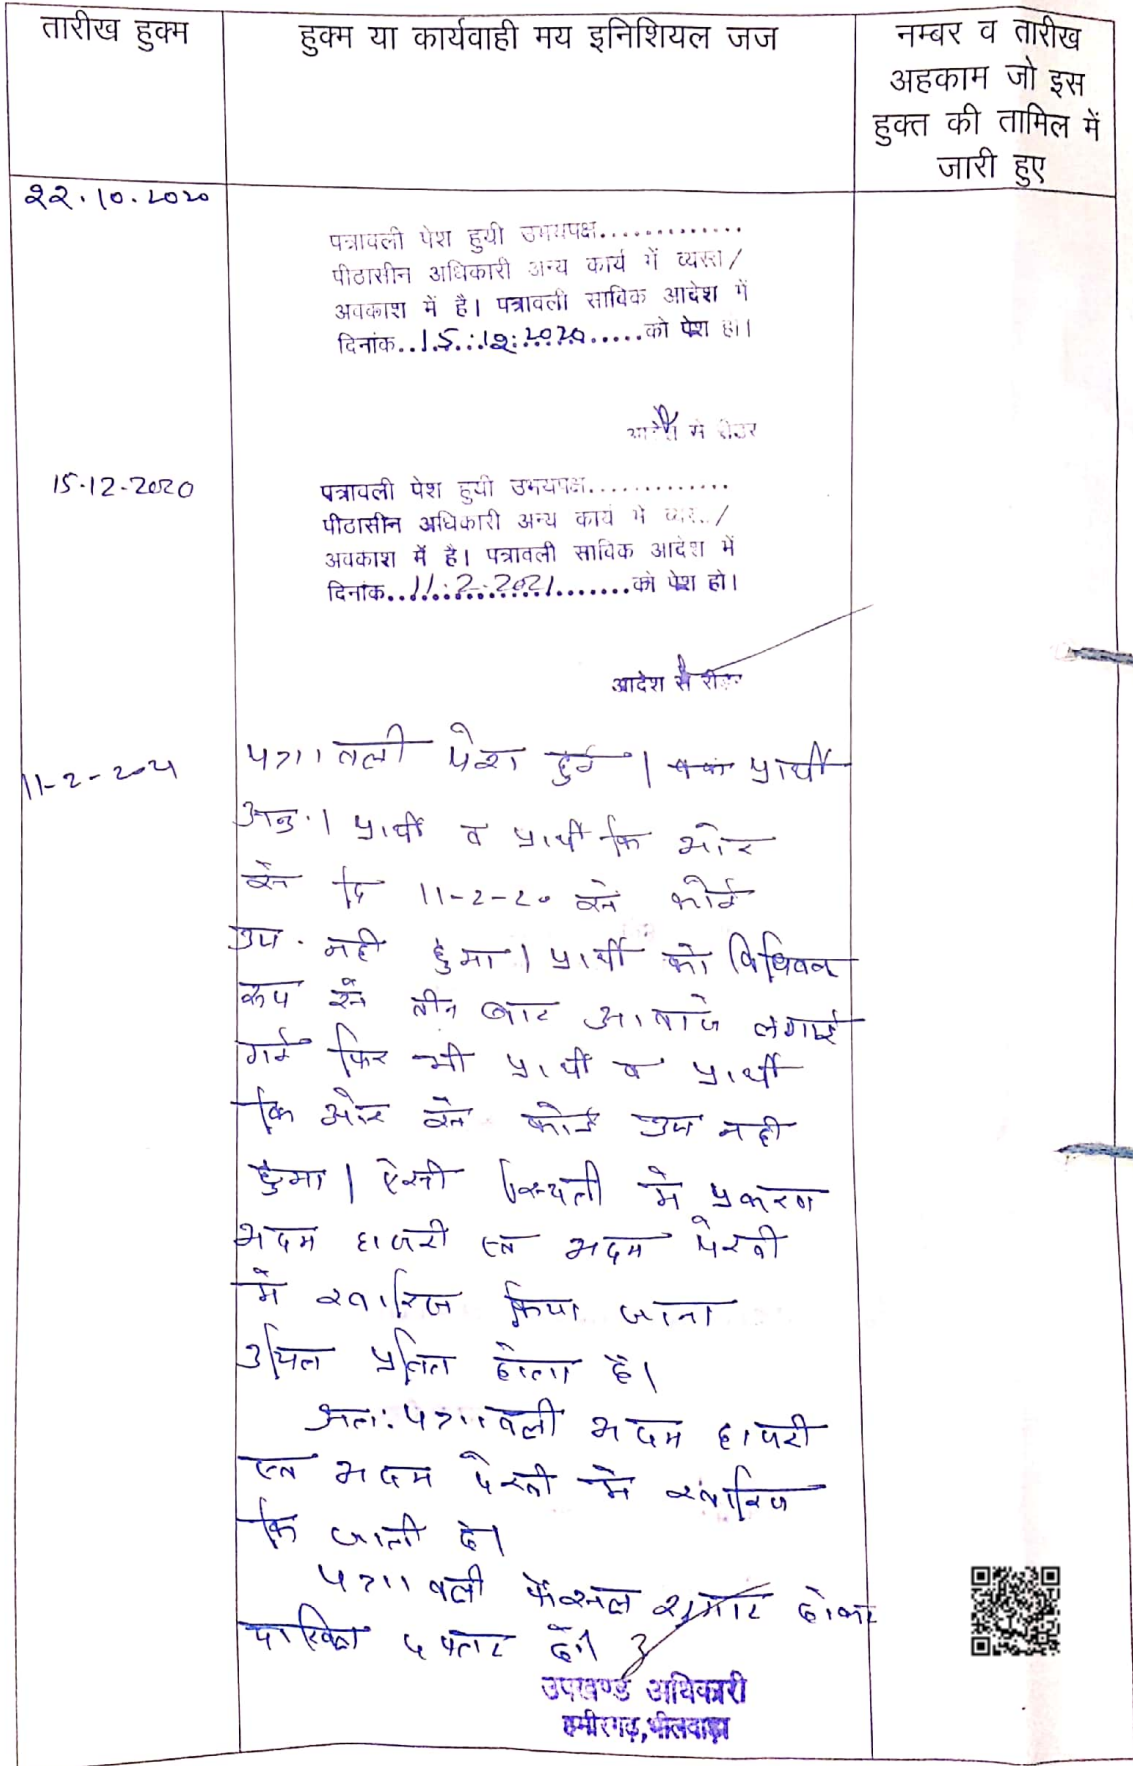 तारीख हुक्म
हुक्म या कार्यवाही मय इनिशियल जज
नम्बर व तारीख
अहकाम जो इस
हुक्त की तामिल में
जारी हुए
22.10.2020
पत्रावली पेश हुयी उभयपक्ष.............
पीठासीन अधिकारी अन्य कार्य में व्यस्त/
अवकाश में है। पत्रावली साविक आदेश में
दिनांक..15.12.2020......को पेश हो।
आदेश से रीडर
15-12-2020
पत्रावली पेश हुयी उभयपक्ष.............
पीठासीन अधिकारी अन्य कार्य में व्यस्त/
अवकाश में है। पत्रावली साविक आदेश में
दिनांक..11.2.2021.......को पेश हो।
आदेश से रीडर
11-2-2021
पत्रावली पेश हुई। प्रार्थी
अनु.। प्रार्थी व प्रार्थी कि ओर
से दि 11-2-20 से कोई
उप. नही हुआ। प्रार्थी को विधिवत
रूप से तीन बार आवाजे लगाई
गई फिर भी प्रार्थी व प्रार्थी
कि ओर से कोई उप नही
हुआ। ऐसी स्थिती मे प्रकरण
अदम हाजरी एव अदम पेरवी
में खारिज किया जाना
उचित प्रतित होता है।
अतः पत्रावली अदम हाजरी
एव अदम पेरवी मे खारिज
कि जाती है।
पत्रावली फैसल शुमार होकर
दाखिल दफ्तर हो।
उपखण्ड अधिकारी
हमीरगढ़,भीलवाड़ा